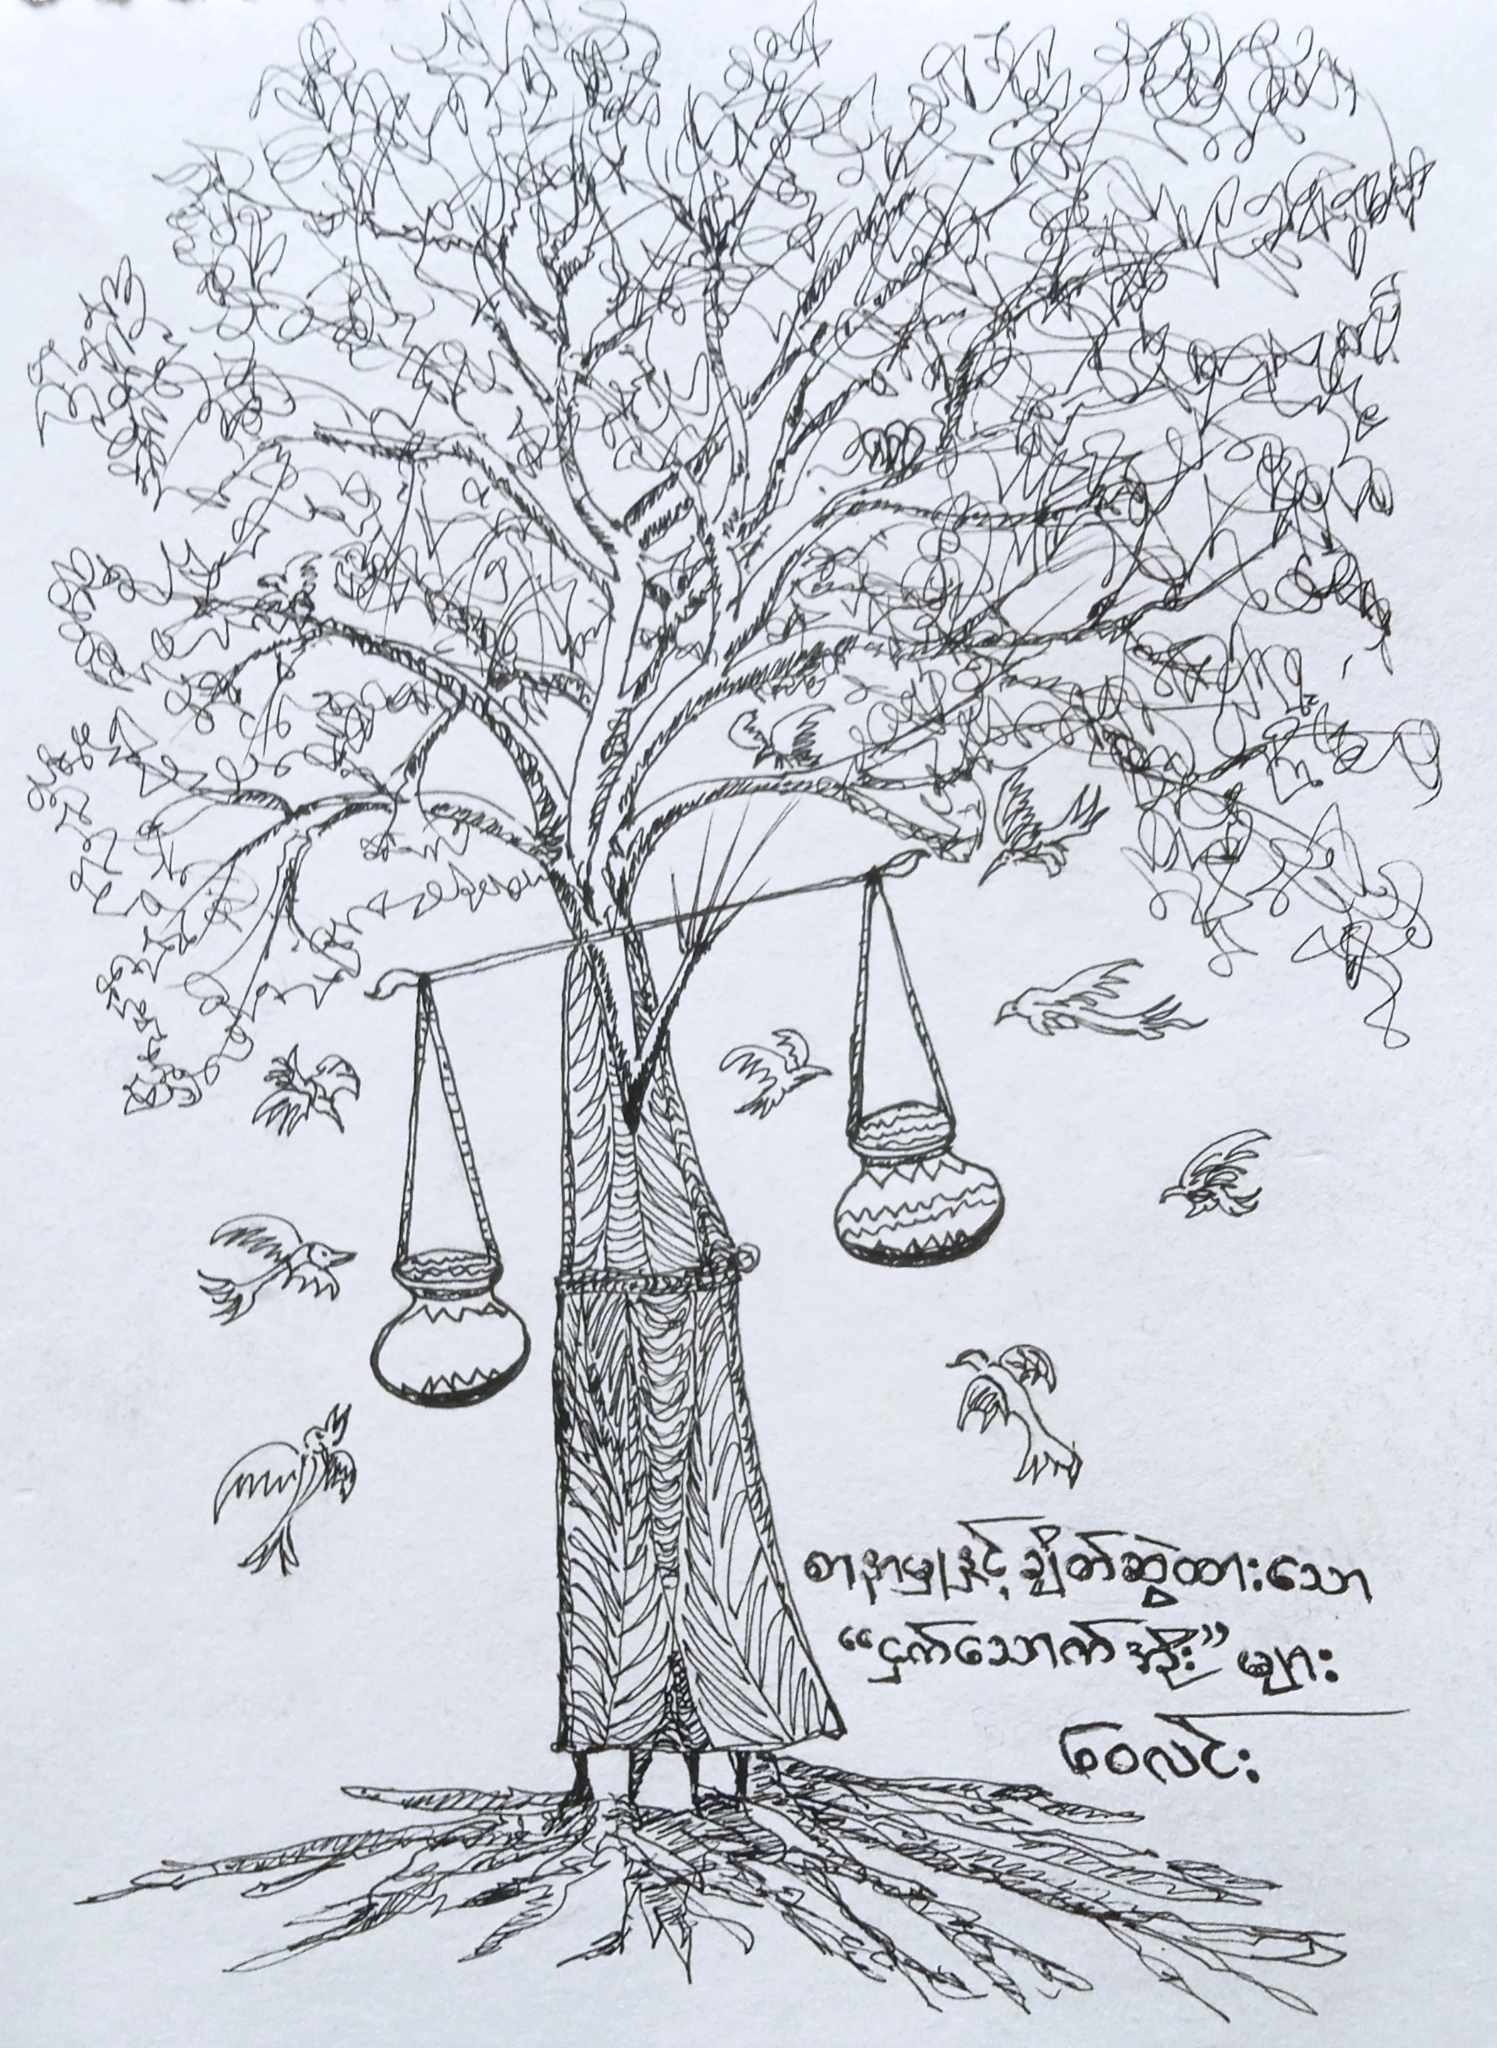 စာနာမှုဖြင့် ချိတ်ဆွဲထားသော
“ငှက်သောက်အိုး” များ
ဝေလင်း